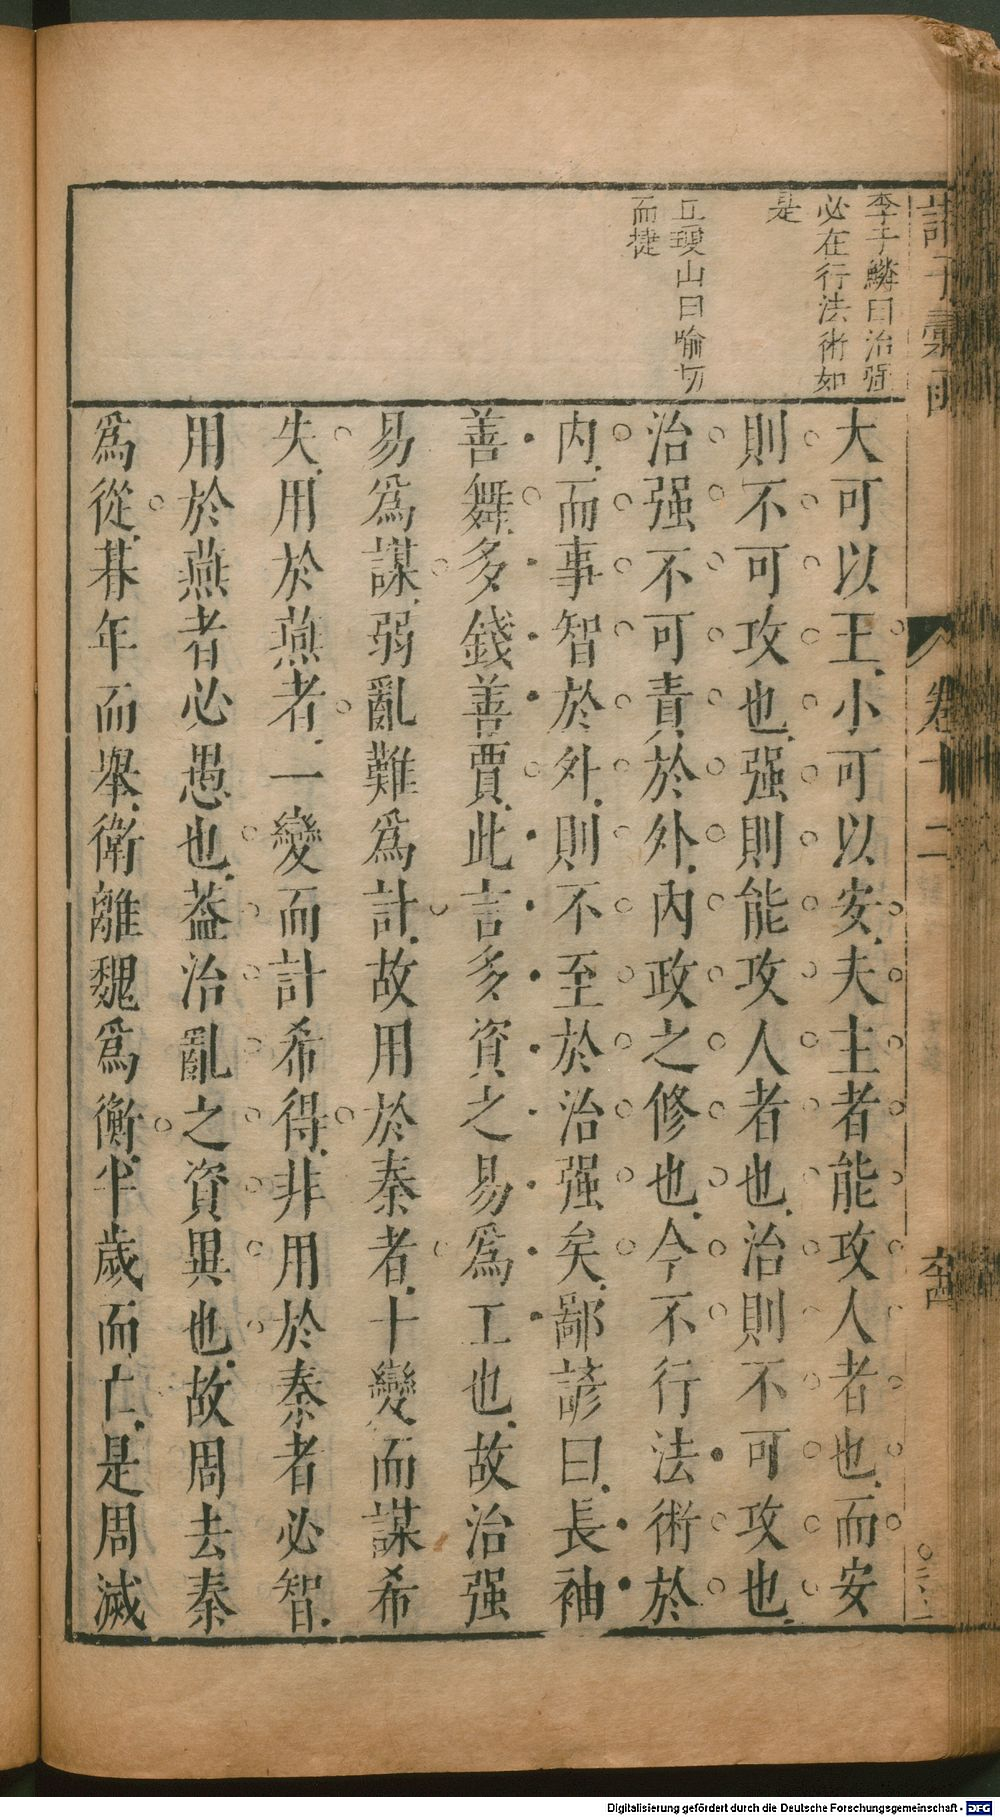 李于鱗曰治强
必在行法術如
是
丘瓊山曰喻切
而捷
大可以王小可以安夫主者能攻人者也而安
則不可攻也强則能攻人者也治則不可攻也
治强不可責於外內政之修也今不行法術於
內而事智於外則不至於治强矣鄙諺曰長袖
善舞多錢善賈此言多資之易爲工也故治强
易爲謀弱亂難爲計故用於秦者十變而謀希
失用於燕者一變而計希得非用於秦者必智
用於燕者必愚也葢治亂之資異也故周去秦
爲從朞年而舉衛離魏爲衡半歲而亡是周滅
卷十二
Digitalisierung gefördert durch die Deutsche Forschungsgemeinschaft - DFG